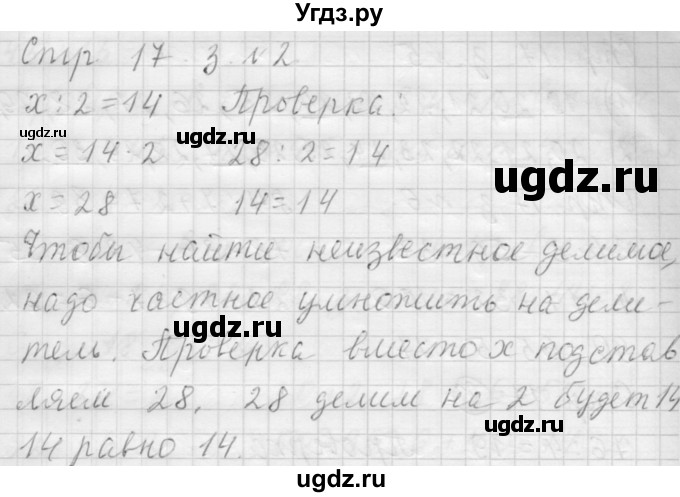 Угдз.ру
Стр 17 з №2
x:2=14 Проверка:
ugdz.ru
ugdz.ru
x=14·2 28:2=14
ugdz.ru
x=28 14=14
Чтобы найти неизвестное делимое,
надо частное умножить на дели-
ugdz.ru
тель. Проверка вместо x подстав
ляем 28, 28 делим на 2 будет 14
ugdz.ru
14 равно 14.
ugdz.ru